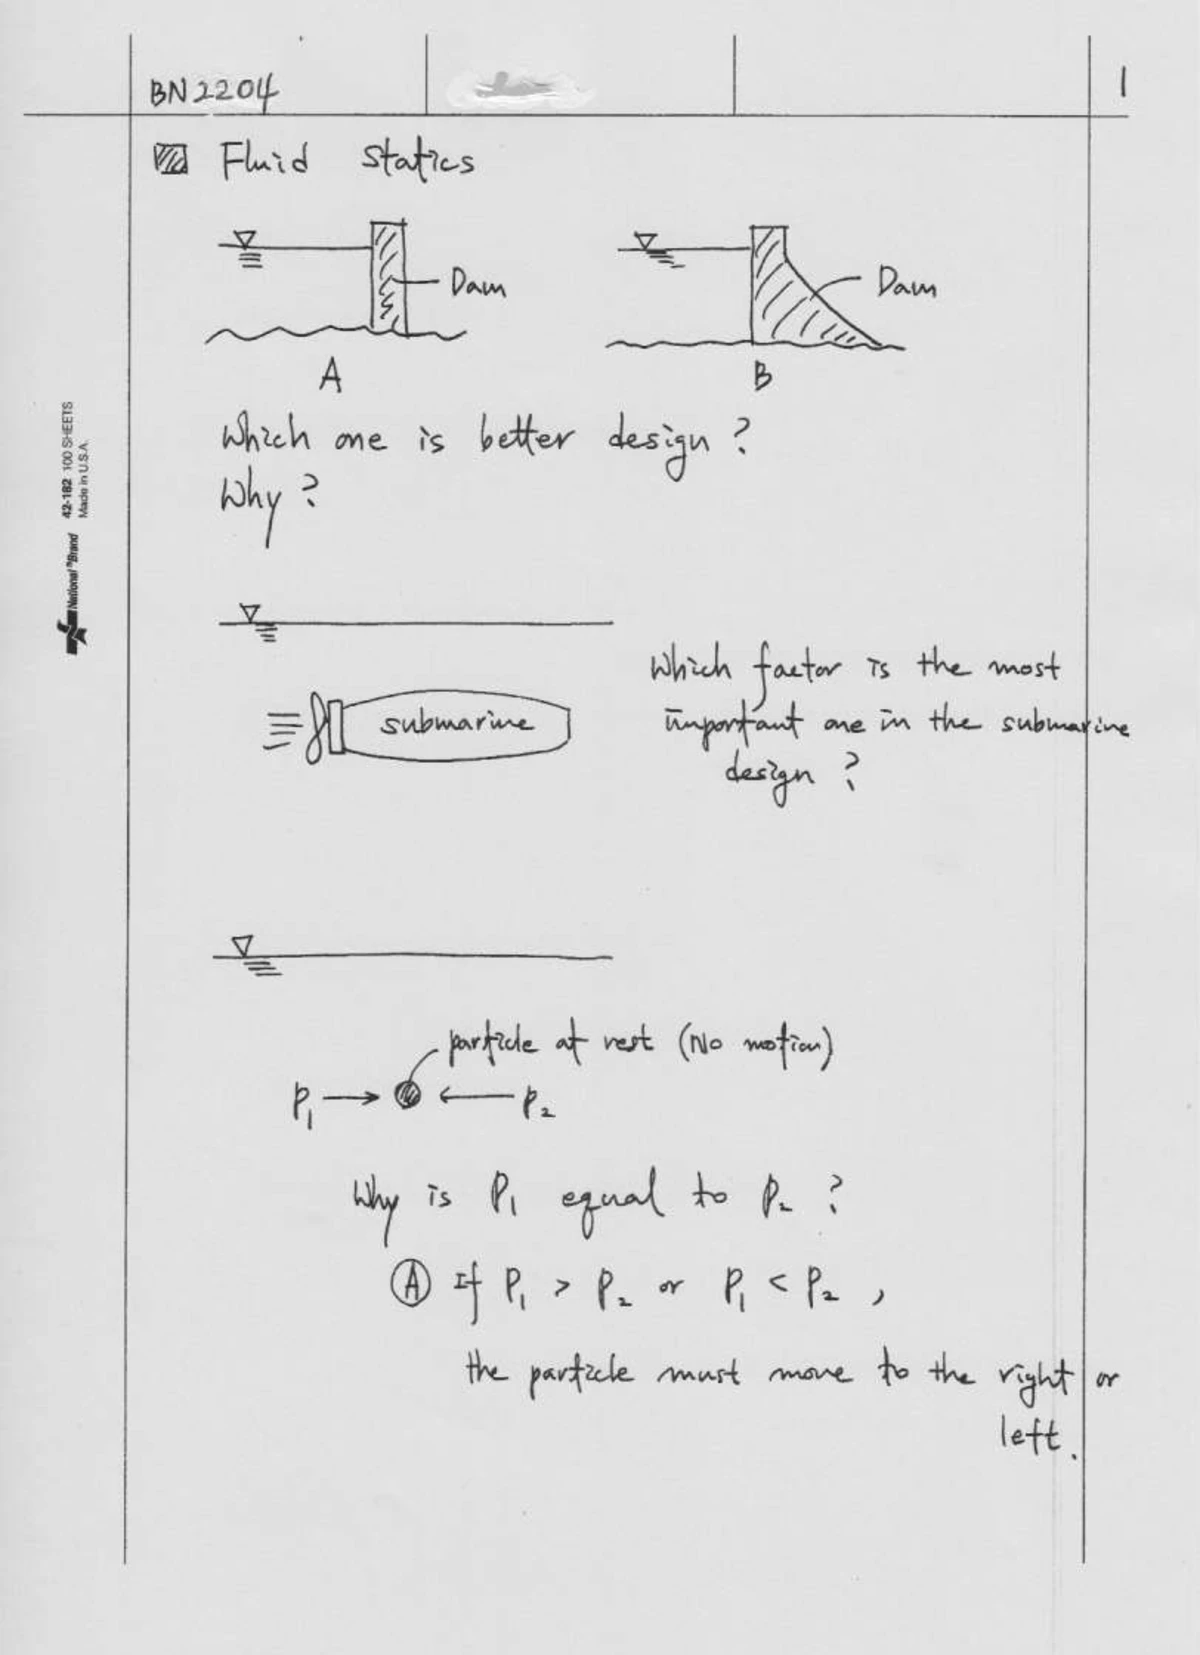 BN2204
1
Fluid Statics
Dam
Dam
A
B
Which one is better design?
Why?
42-182 100 SHEETS
Made in U.S.A.
National ®Brand
submarine
Which factor is the most
important one in the submarine
design?
particle at rest (No motion)
P₁ P₂
Why is P₁ equal to P₂ ?
Ⓐ If P₁ > P₂ or P₁ < P₂ ,
the particle must move to the right or
left.